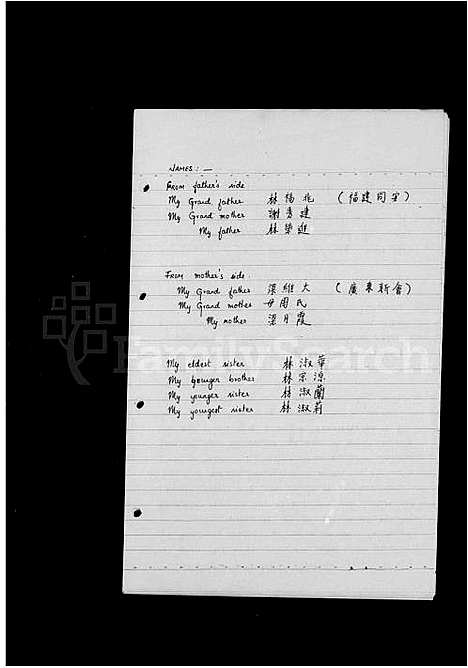 NAMES: —
FROM father's side
My Grand father 林楊兆 (福建同安)
My Grand mother 謝秀建
My father 林榮進
FROM mother's side
My Grand father 梁維大 (廣東新會)
My Grand mother 毋周氏
My mother 梁月霞
My eldest sister 林淑華
My younger brother 林宗源
My younger sister 林淑蘭
My youngest sister 林淑莉
FamilySearch